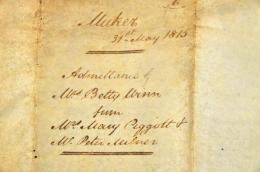 Muker
31st May 1815
Admittance of
Mrs Betty Winn
from
Mrs Mary Piggott &
Mr Peter Milner